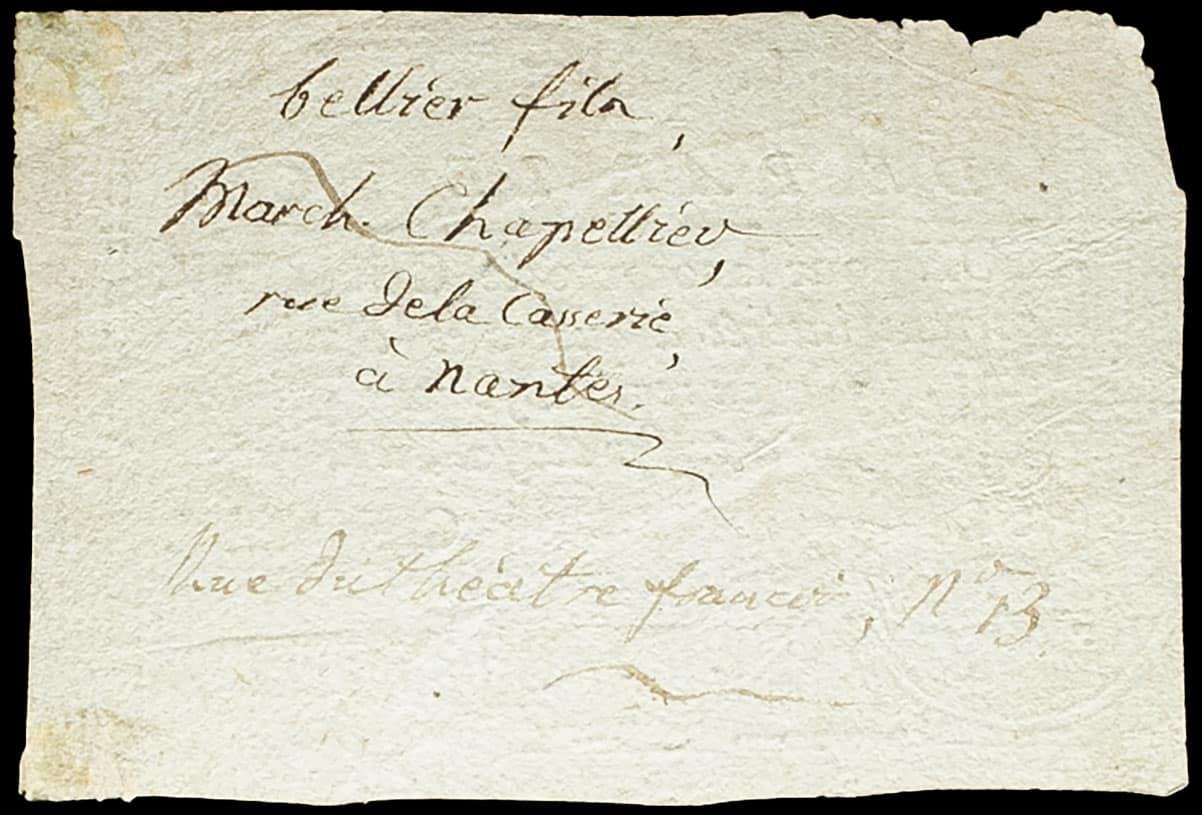 bellier fils,
March. Chapellier,
rue de la Casserie,
à Nantes.
Rue du théâtre francois, No 13.